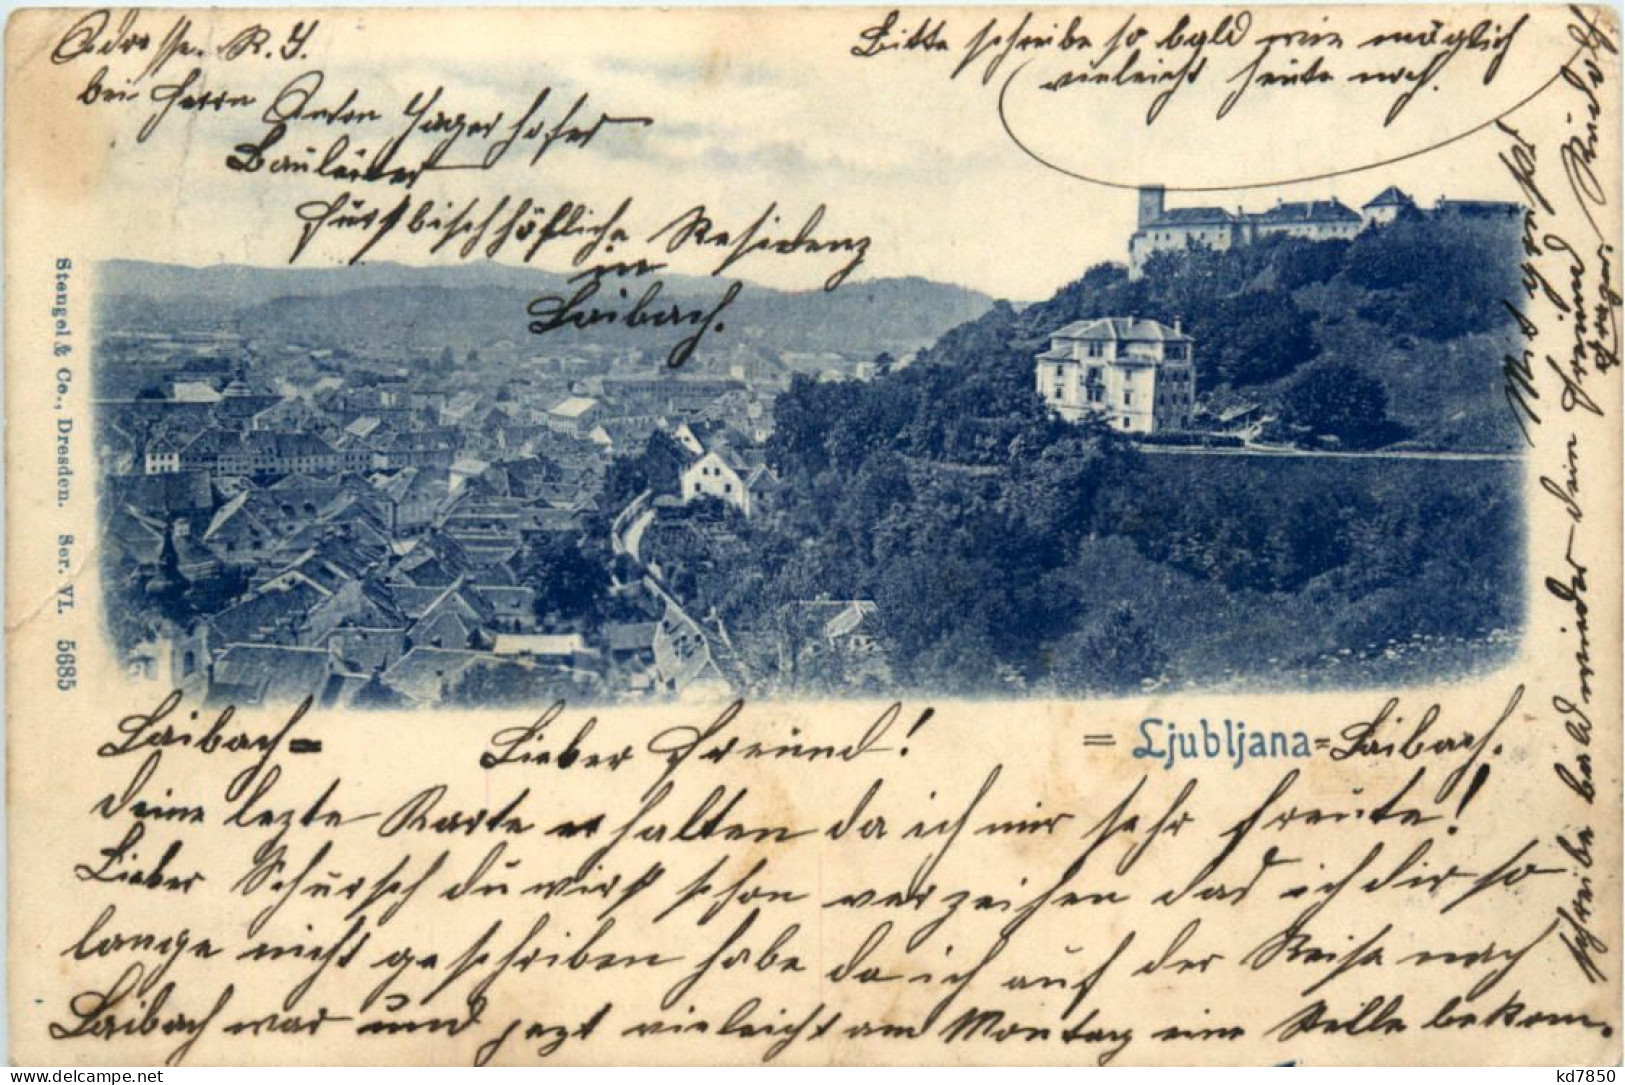 Adresse. R. J.
bei Herrn Anton Jagerhofer
Bauleiter
Fürstbischhöfliche Residenz
in
Laibach.
Bitte schreibe so bald wie möglich
vieleicht heute noch.
Stengel & Co., Dresden. Ser. VI. 5685
= Ljubljana = Laibach.
Laibach =
Lieber Freund!
deine lezte Karte erhalten da ich mir sehr freute!
Lieber Schursch du wirst schon verzeihen das ich dir so
lange nicht geschriben habe da ich auf der Reise nach
Laibach war und jezt vieleicht am Montag eine Stelle bekom.
schreibe bald wieder dein Freund Rudolf
kd7850